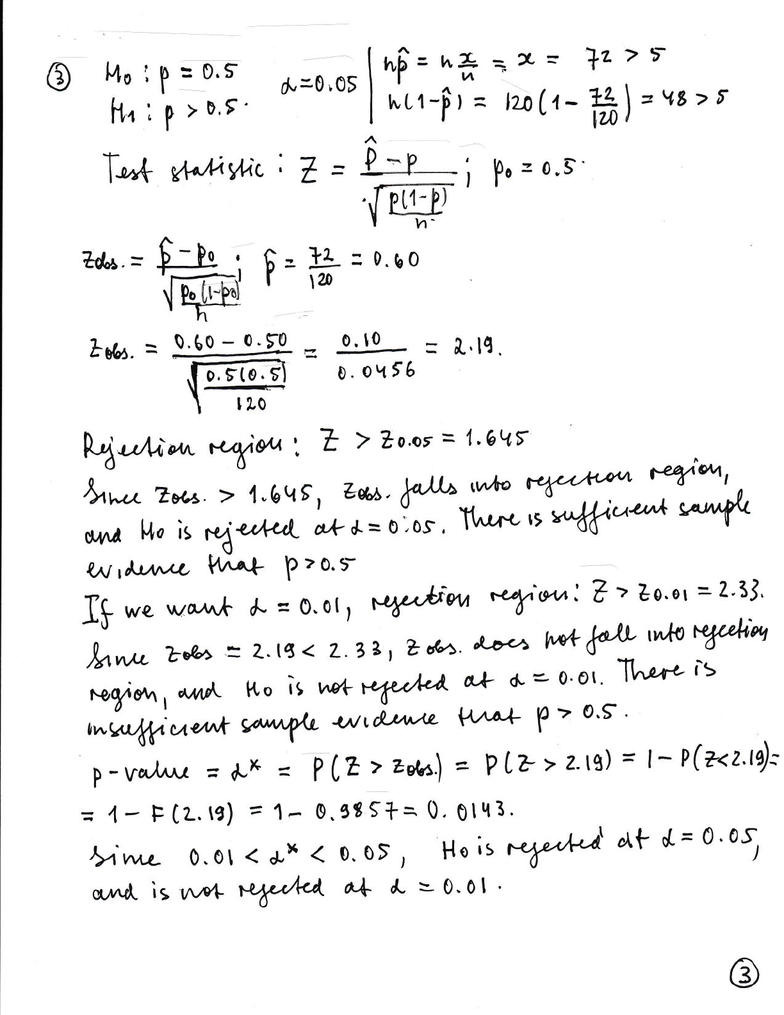 ③ H₀ : p = 0.5    α = 0.05 | np̂ = n x/n = x = 72 > 5
H₁ : p > 0.5. | n(1-p̂) = 120(1 - 72/120) = 48 > 5
Test statistic : Z = (p̂ - p)/√(p(1-p)/n) ; p₀ = 0.5.
Zobs. = (p̂ - p₀)/√(p₀(1-p₀)/n) ; p̂ = 72/120 = 0.60
Zobs. = (0.60 - 0.50)/√(0.5(0.5)/120) = 0.10/0.0456 = 2.19.
Rejection region : Z > Z0.05 = 1.645
Since Zobs. > 1.645, Zobs. falls into rejection region,
and H₀ is rejected at α = 0.05. There is sufficient sample
evidence that p > 0.5
If we want α = 0.01, rejection region : Z > Z0.01 = 2.33.
Since Zobs = 2.19 < 2.33, Zobs. does not fall into rejection
region, and H₀ is not rejected at α = 0.01. There is
insufficient sample evidence that p > 0.5.
p-value = α* = P(Z > Zobs.) = P(Z > 2.19) = 1 - P(Z < 2.19) =
= 1 - F(2.19) = 1 - 0.9857 = 0.0143.
Since 0.01 < α* < 0.05, H₀ is rejected at α = 0.05,
and is not rejected at α = 0.01.
③